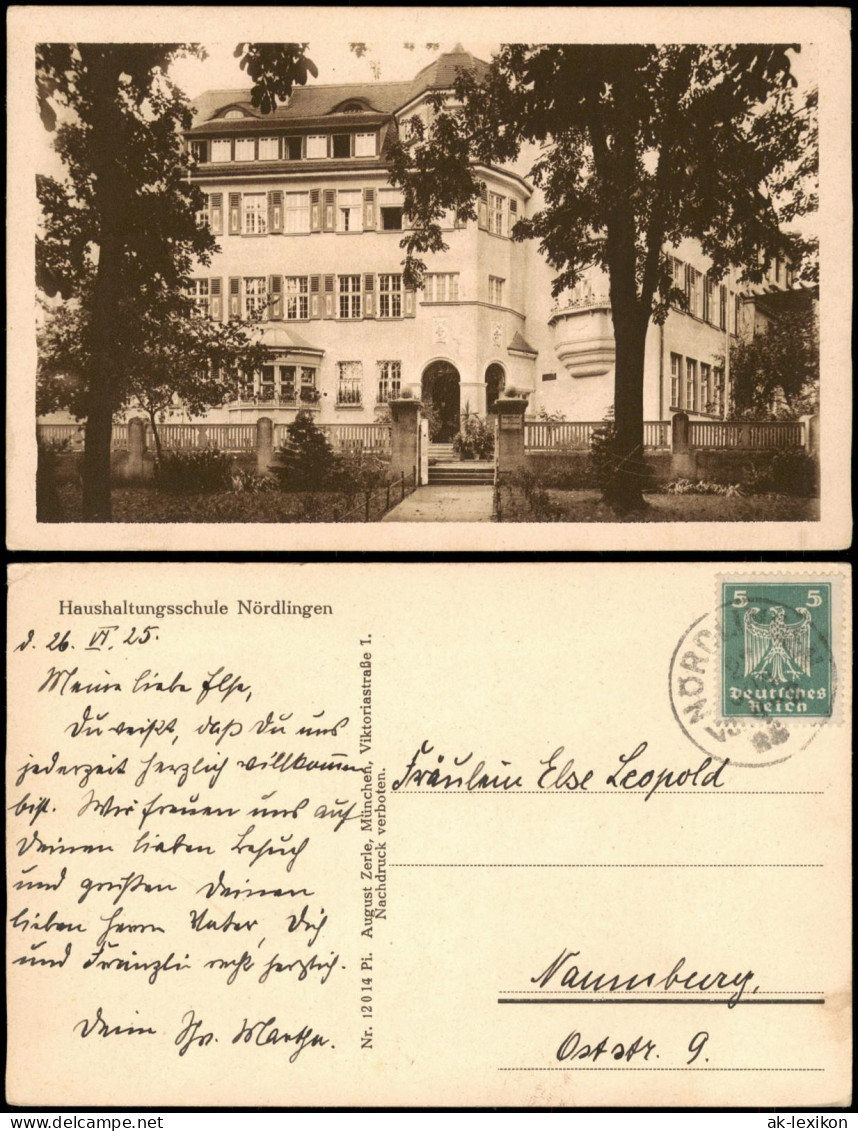 Haushaltungsschule Nördlingen
d. 26. VI. 25.
Meine liebe Else,
Du weißt, daß Du uns
jederzeit herzlich willkommen
bist. Wir freuen uns auf
Deinen lieben Besuch
und grüßen Deinen
lieben Herrn Vater, Dich
und Fränzli recht herzlich.
Deine Schw. Martha.
Nr. 12014 Pi. August Zerle, München, Viktoriastraße 1.
Nachdruck verboten.
5 5
Deutsches
Reich
NÖRDLINGEN
Fräulein Else Leopold
Naumburg,
Oststr. 9.
ak-lexikon